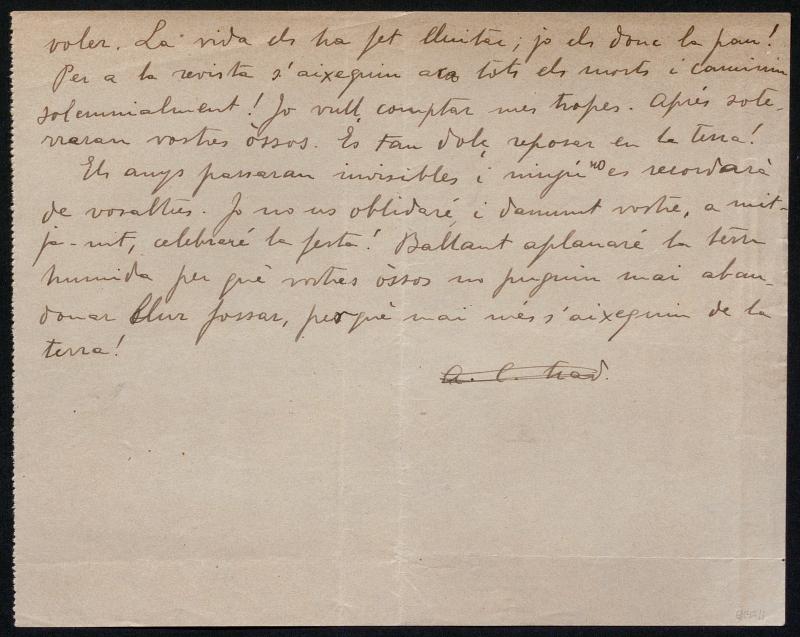 voler. La vida els ha fet lluitar; jo els donc la pau!
Per a la revista s'aixequin ara tots els morts i caminin
solemnialment! Jo vull comptar mes tropes. Aprés sote-
rraran vostres òssos. Es tan dolç reposar en la terra!
Els anys passaran invisibles i ningú no es recordarà
de vosaltres. Jo no us oblidaré i damunt vostre, a mit-
ja-nit, celebraré la festa! Ballant aplanaré la terra
humida per què vostres òssos no puguin mai aban-
donar llur fossar, perquè mai més s'aixequin de la
terra!
a. C. trad.